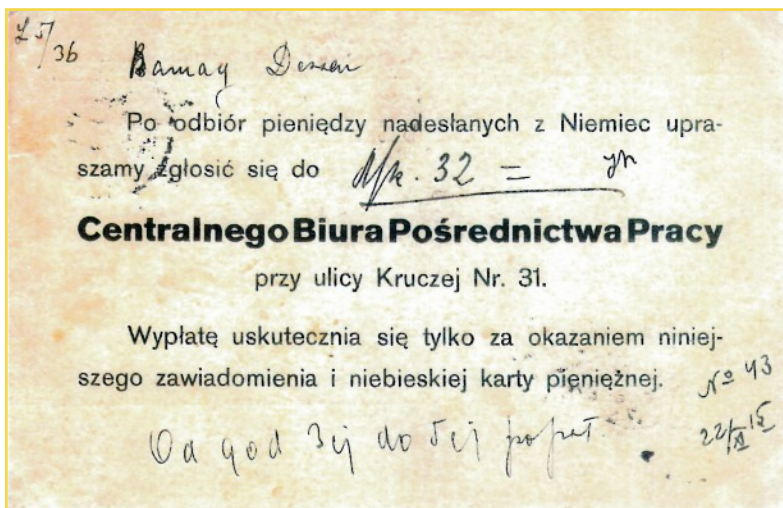 36
Bamag Dessau
Po odbiór pieniędzy nadesłanych z Niemiec upra-
szamy zgłosić się do Mk. 32 =
Centralnego Biura Pośrednictwa Pracy
przy ulicy Kruczej Nr. 31.
Wypłatę uskutecznia się tylko za okazaniem niniej-
szego zawiadomienia i niebieskiej karty pieniężnej.
№ 43
Od god 3ej do 5ej popoł.
22/XI 15